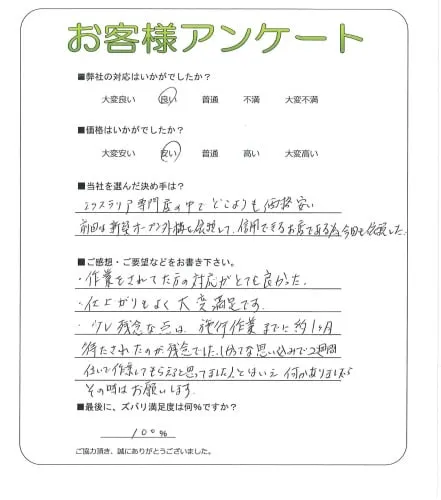 お客様アンケート
■弊社の対応はいかがでしたか？
大変良い 良い 普通 不満 大変不満
■価格はいかがでしたか？
大変安い 安い 普通 高い 大変高い
■当社を選んだ決め手は？
エクステリア専門店の中で どこよりも価格安い
前回は新築オープン外構を依頼して、信用できるお店である為今回も依頼した。
■ご感想・ご要望などをお書き下さい。
・作業をされてた方の対応がとても良かった。
・仕上がりもよく大変満足です。
・少し残念な点は、施行作業までに約1ヶ月
待たされたのが残念でした。な思い込みで2週間
位いで作業してもらえると思ってました とはいえ 何かありましたら
その時はお願いします。
■最後に、ズバリ満足度は何％ですか？
100％
ご協力頂き、誠にありがとうございました。